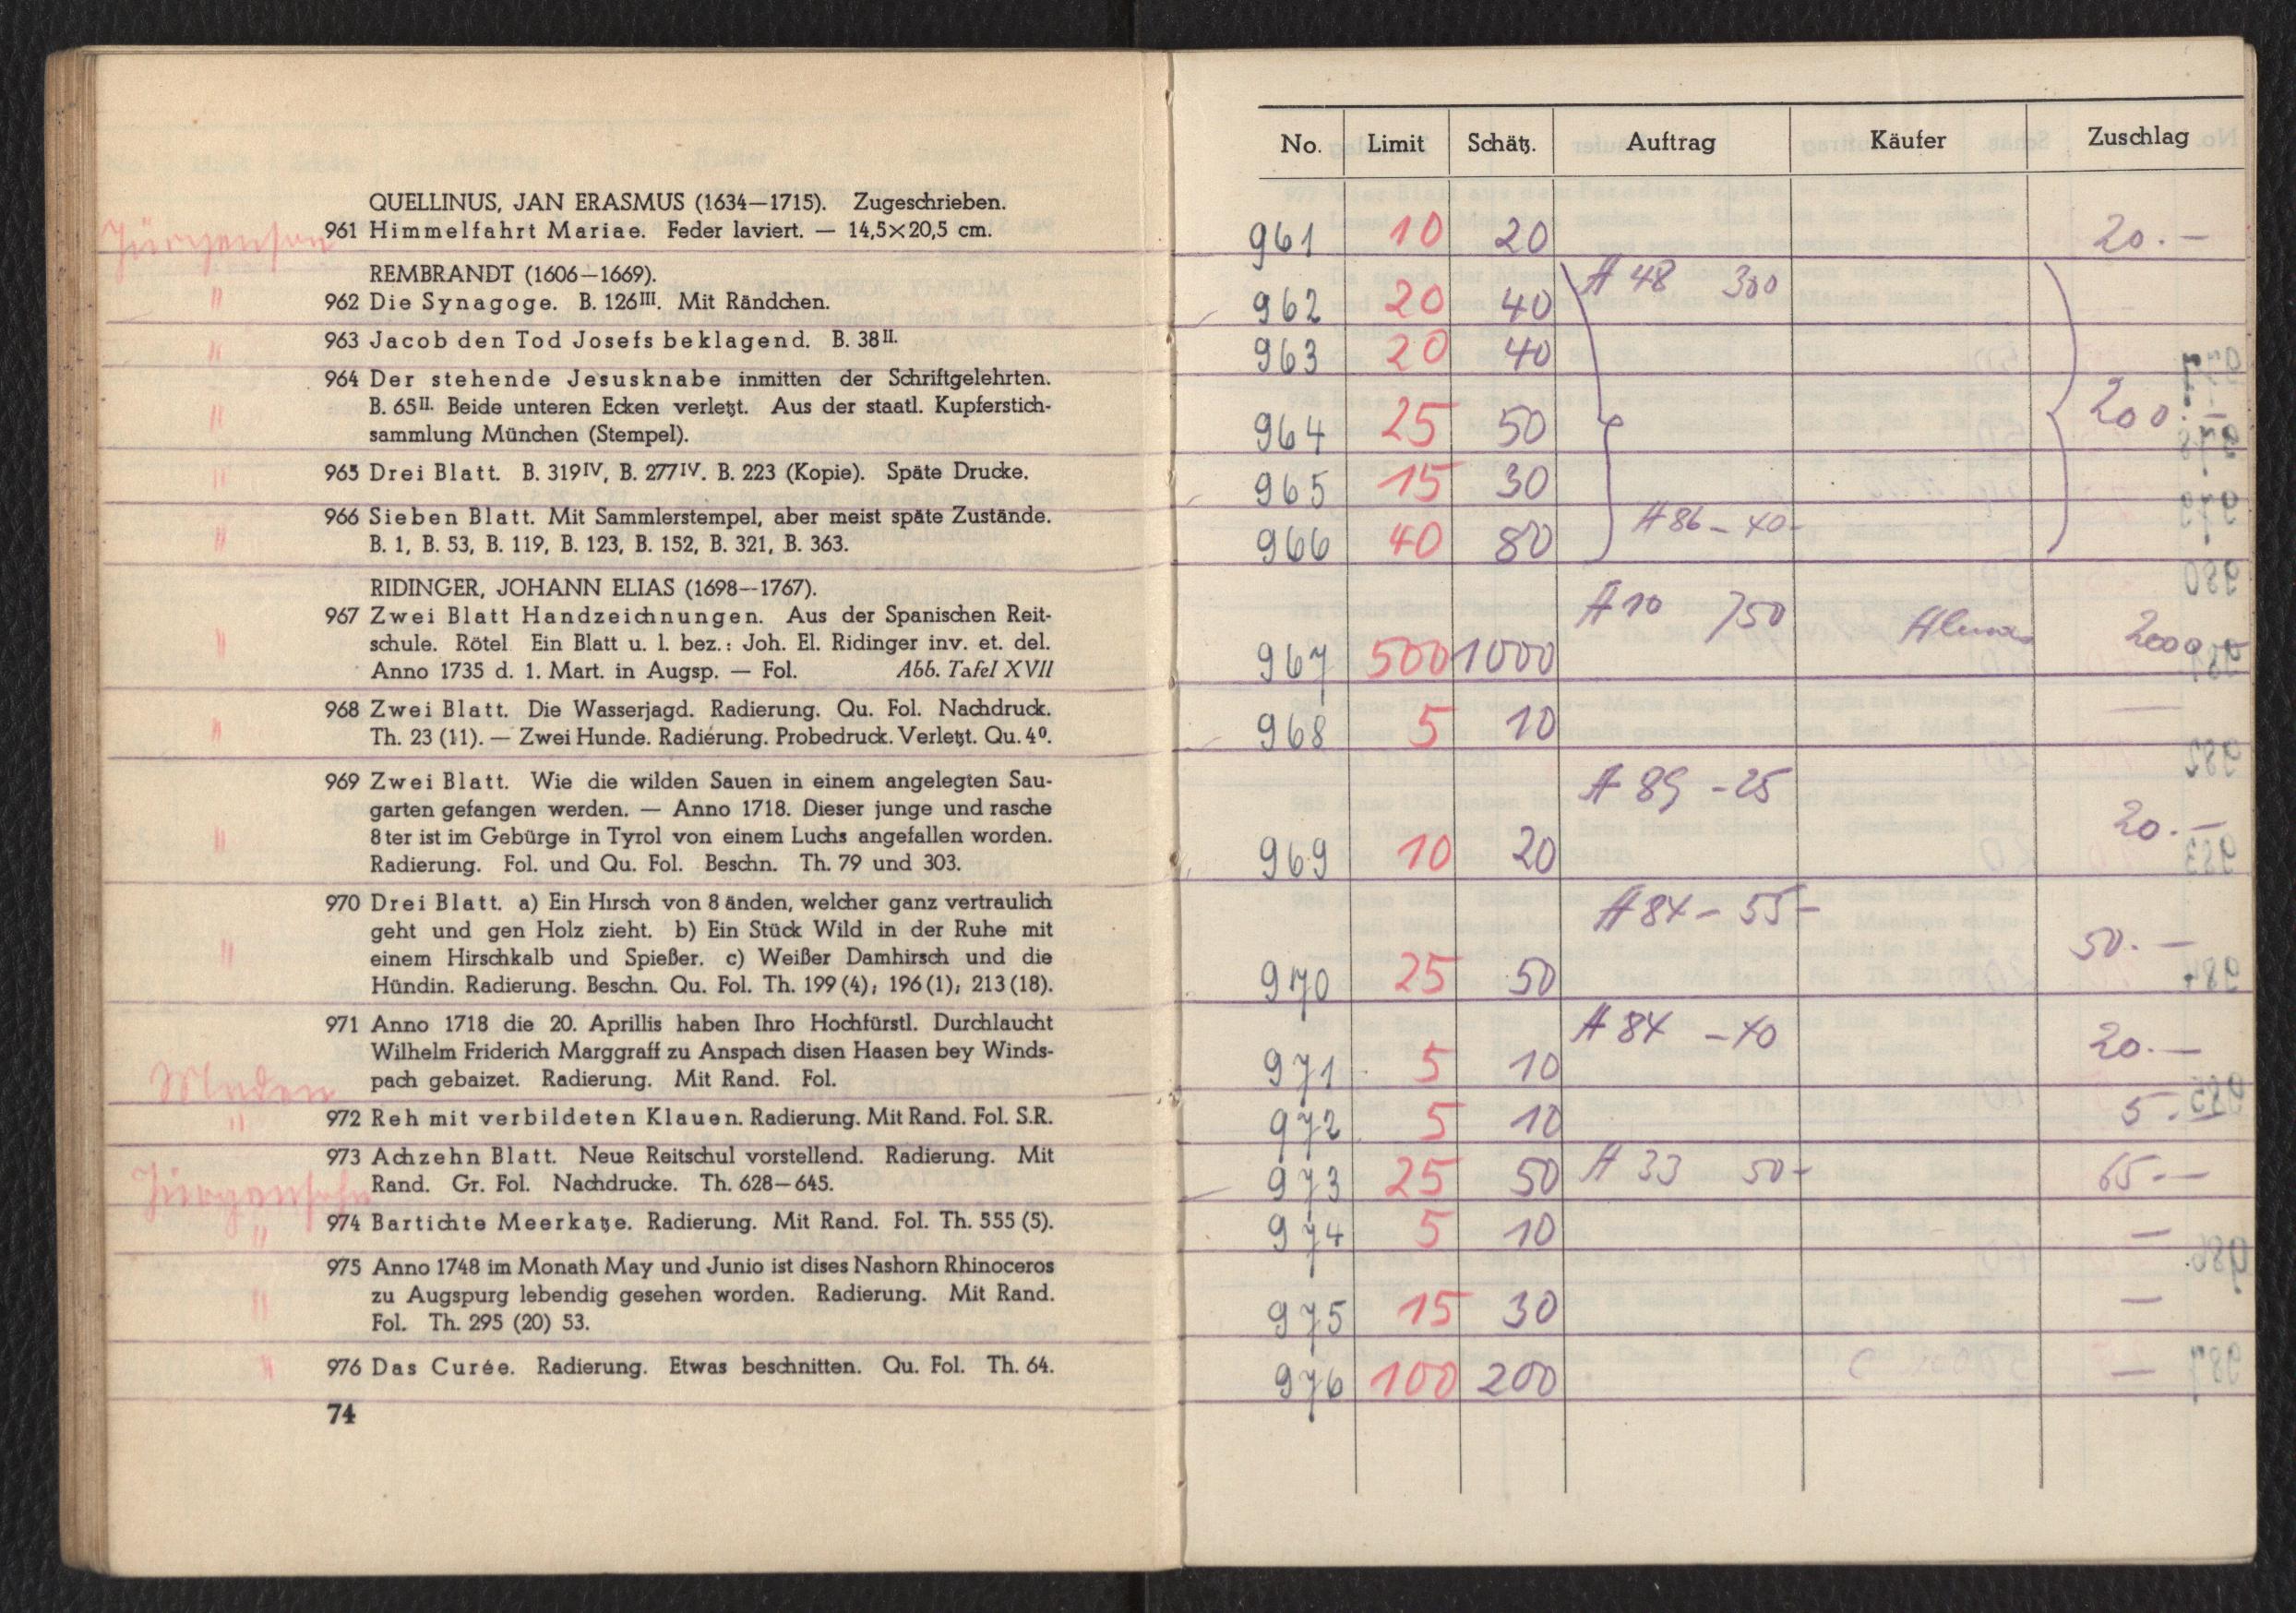 QUELLINUS, JAN ERASMUS (1634—1715). Zugeschrieben.
Jürgensen 961 Himmelfahrt Mariae. Feder laviert. — 14,5×20,5 cm.
REMBRANDT (1606—1669).
" 962 Die Synagoge. B. 126III. Mit Rändchen.
" 963 Jacob den Tod Josefs beklagend. B. 38II.
964 Der stehende Jesusknabe inmitten der Schriftgelehrten.
" B. 65II. Beide unteren Ecken verletzt. Aus der staatl. Kupferstich-
sammlung München (Stempel).
" 965 Drei Blatt. B. 319IV, B. 277IV. B. 223 (Kopie). Späte Drucke.
966 Sieben Blatt. Mit Sammlerstempel, aber meist späte Zustände.
" B. 1, B. 53, B. 119, B. 123, B. 152, B. 321, B. 363.
RIDINGER, JOHANN ELIAS (1698--1767).
967 Zwei Blatt Handzeichnungen. Aus der Spanischen Reit-
" schule. Rötel Ein Blatt u. l. bez.: Joh. El. Ridinger inv. et. del.
Anno 1735 d. 1. Mart. in Augsp. — Fol. Abb. Tafel XVII
968 Zwei Blatt. Die Wasserjagd. Radierung. Qu. Fol. Nachdruck.
" Th. 23 (11). — Zwei Hunde. Radierung. Probedruck. Verletzt. Qu. 4º.
969 Zwei Blatt. Wie die wilden Sauen in einem angelegten Sau-
garten gefangen werden. — Anno 1718. Dieser junge und rasche
" 8ter ist im Gebürge in Tyrol von einem Luchs angefallen worden.
Radierung. Fol. und Qu. Fol. Beschn. Th. 79 und 303.
970 Drei Blatt. a) Ein Hirsch von 8 änden, welcher ganz vertraulich
geht und gen Holz zieht. b) Ein Stück Wild in der Ruhe mit
" einem Hirschkalb und Spießer. c) Weißer Damhirsch und die
Hündin. Radierung. Beschn. Qu. Fol. Th. 199 (4); 196 (1); 213 (18).
971 Anno 1718 die 20. Aprillis haben Ihro Hochfürstl. Durchlaucht
Wilhelm Friderich Marggraff zu Anspach disen Haasen bey Winds-
pach gebaizet. Radierung. Mit Rand. Fol.
" 972 Reh mit verbildeten Klauen. Radierung. Mit Rand. Fol. S.R.
973 Achzehn Blatt. Neue Reitschul vorstellend. Radierung. Mit
Jürgensohn Rand. Gr. Fol. Nachdrucke. Th. 628—645.
" 974 Bartichte Meerkatze. Radierung. Mit Rand. Fol. Th. 555 (5).
975 Anno 1748 im Monath May und Junio ist dises Nashorn Rhinoceros
" zu Augspurg lebendig gesehen worden. Radierung. Mit Rand.
Fol. Th. 295 (20) 53.
" 976 Das Curée. Radierung. Etwas beschnitten. Qu. Fol. Th. 64.
74
No. Limit Schätz. Auftrag Käufer Zuschlag
961 10 20 20.—
962 20 40 A 48 300
963 20 40
964 25 50 200.—
965 15 30
966 40 80 A 86 – 40-
967 500 1000 A 10 750 2000
968 5 10 —
969 10 20 A 89 – 25 20.—
970 25 50 A 84 – 55 – 50.—
971 5 10 A 84 – 40 20.—
972 5 10 5.—
973 25 50 A 33 50- 65.—
974 5 10 —
975 15 30 —
976 100 200 —